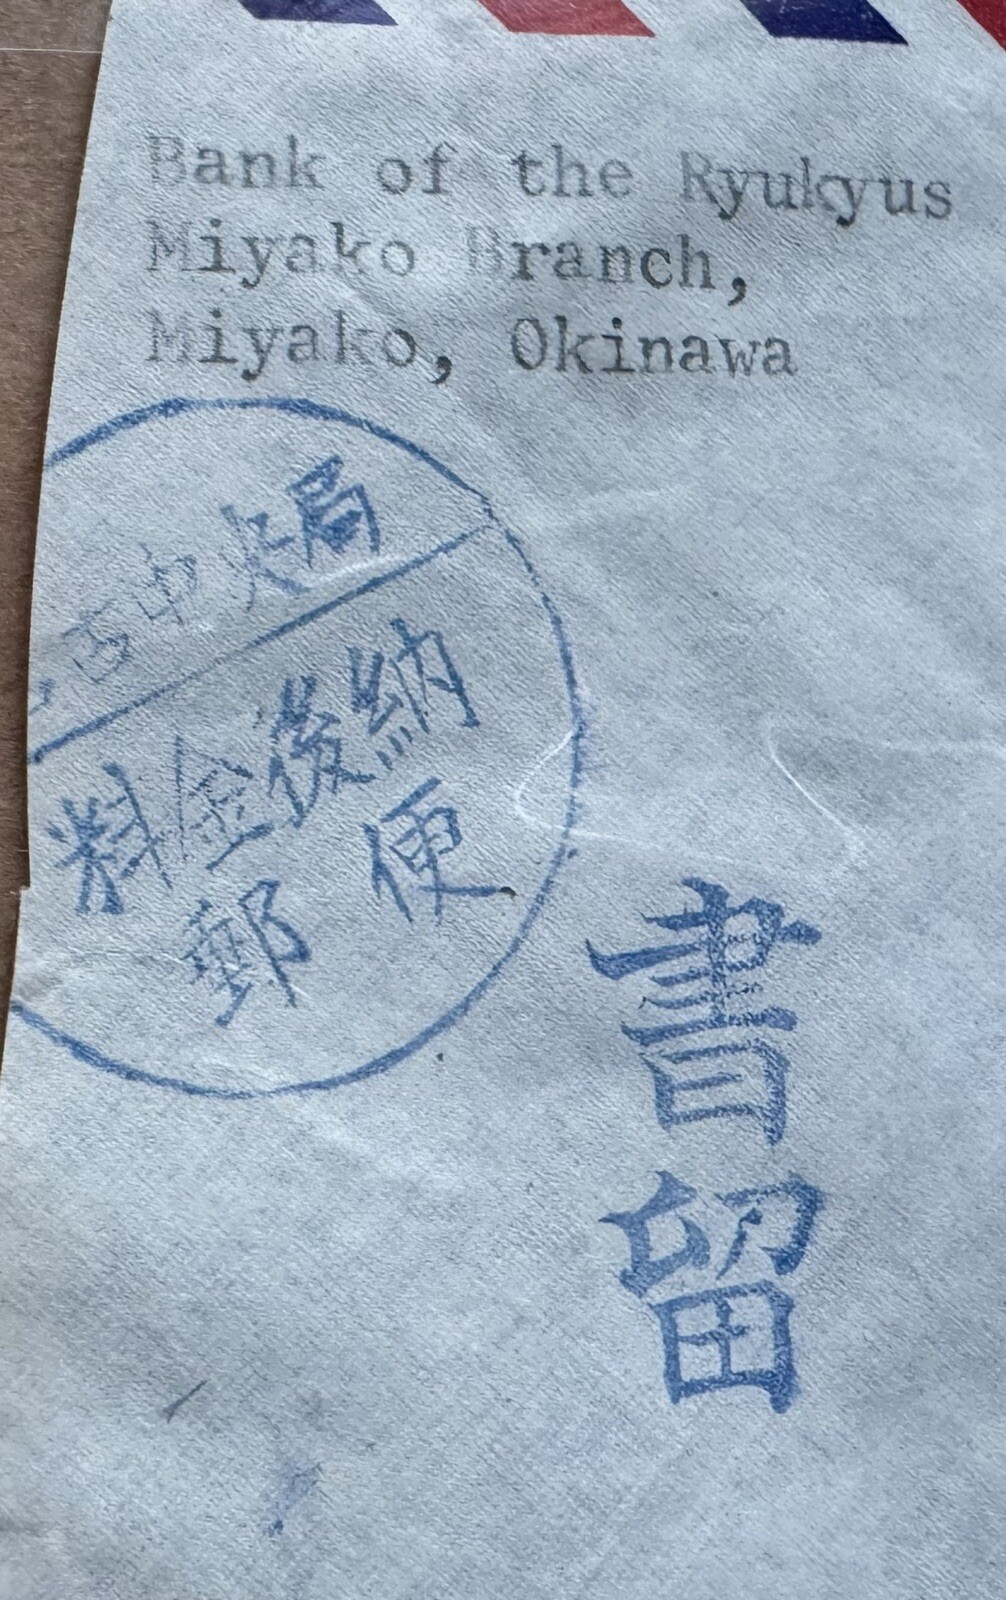 Bank of the Ryukyus
Miyako Branch,
Miyako, Okinawa
中央局
料金後納
郵便
書留